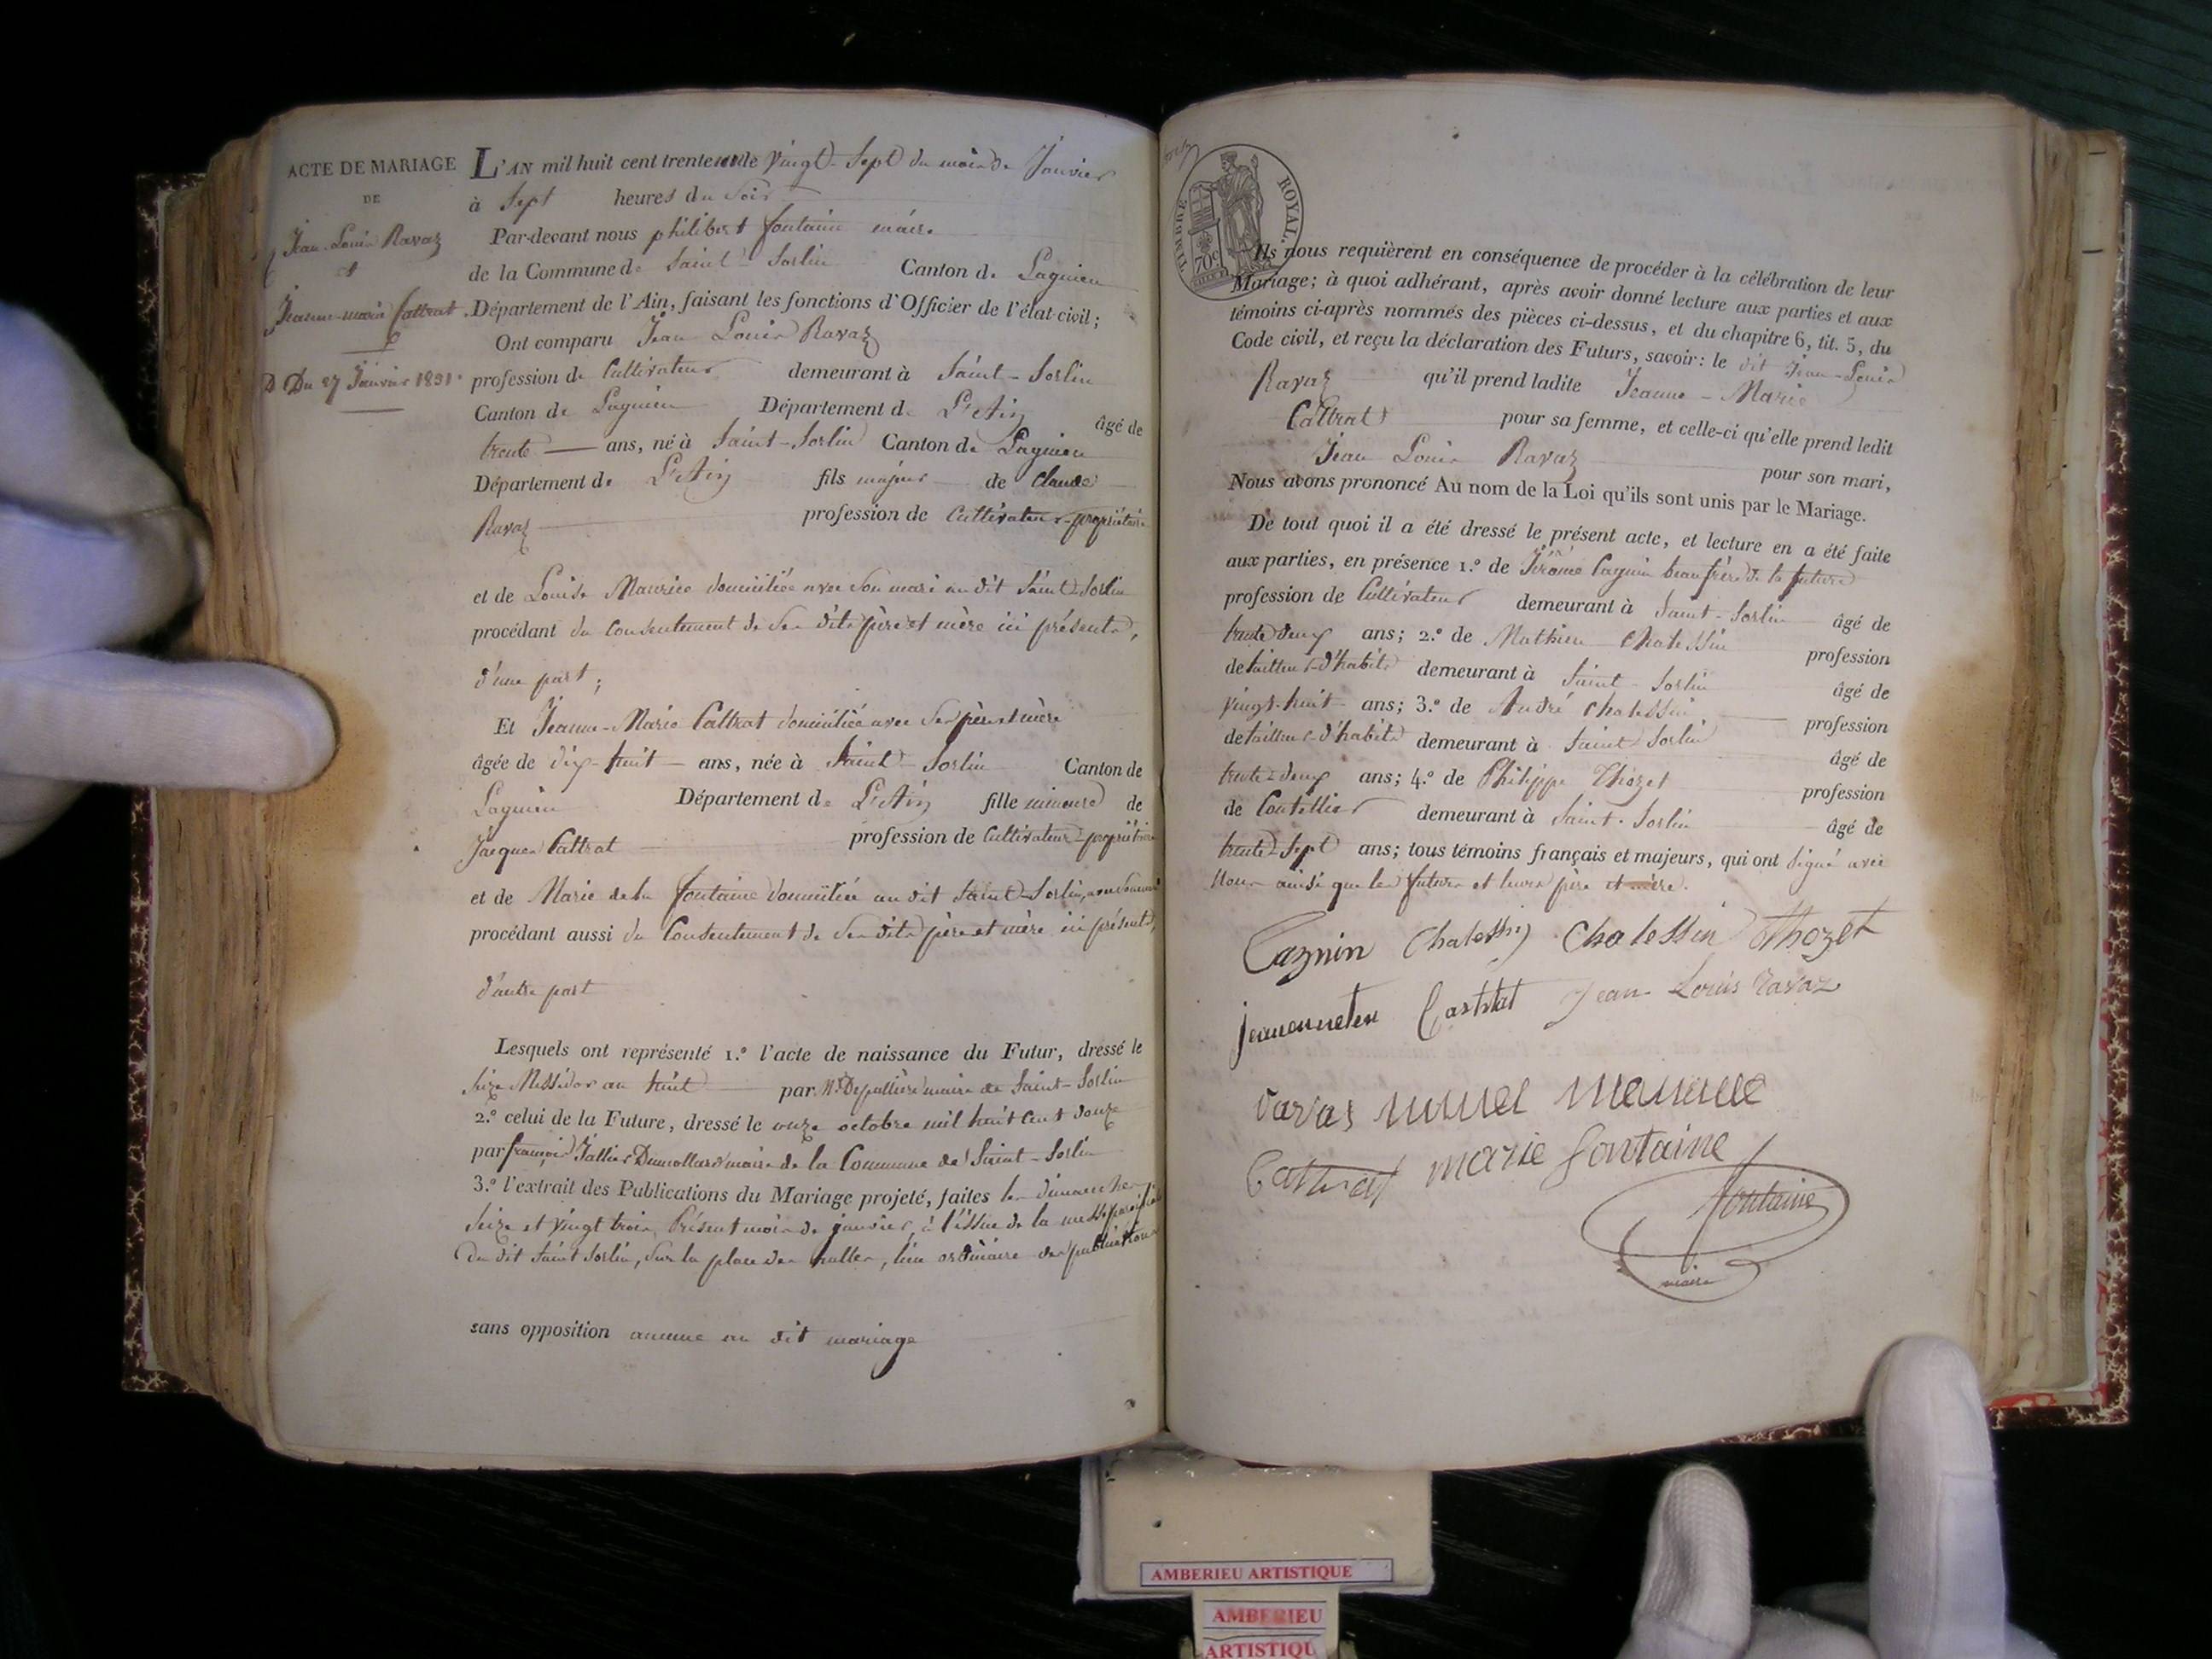 ACTE DE MARIAGE
DE
Jean-Louis Ravaz
et
Jeanne-marie Cattrat
D Du 27 Janvier 1831.
L'AN mil huit cent trente un le Vingt-Sept du mois de Janvier
à Sept heures du Soir
Par-devant nous philibert fontaine maire
de la Commune de Saint-Sorlin Canton de Lagnieu
Département de l'Ain, faisant les fonctions d'Officier de l'état-civil;
Ont comparu Jean Louis Ravaz
profession de Cultivateur demeurant à Saint-Sorlin
Canton de Lagnieu Département de L'Ain âgé de
trente ans, né à Saint-Sorlin Canton de Lagnieu
Département de L'Ain fils majeur de Claude
Ravaz profession de Cultivateur-propriétaire
et de Louise Maurice domiciliée avec Son mari au dit Saint-Sorlin
procédant du Consentement de Ses dits père et mère ici présents,
d'une part;
Et Jeanne-Marie Cattrat domiciliée avec Ses père et mère
âgée de dix-huit ans, née à Saint-Sorlin Canton de
Lagnieu Département de L'Ain fille mineure de
Jacques Cattrat profession de Cultivateur-propriétaire
et de Marie de la fontaine domiciliée au dit Saint-Sorlin,
procédant aussi du Consentement de Ses dits père et mère ici présents,
d'autre part
Lesquels ont représenté 1.º l'acte de naissance du Futur, dressé le
Seize Messidor an huit par maire de Saint-Sorlin
2.º celui de la Future, dressé le onze octobre mil huit cent douze
par françois maire de la Commune de Saint-Sorlin
3.º l'extrait des Publications du Mariage projeté, faites les dimanches
Seize et vingt trois, Présent mois de janvier, à l'issue de la messe
du dit Saint Sorlin, Sur la place des halles, lieu ordinaire des publications
sans opposition aucune au dit mariage
TIMBRE ROYAL.
70c
Ils nous requièrent en conséquence de procéder à la célébration de leur
Mariage; à quoi adhérant, après avoir donné lecture aux parties et aux
témoins ci-après nommés des pièces ci-dessus, et du chapitre 6, tit. 5, du
Code civil, et reçu la déclaration des Futurs, savoir: le dit Jean-Louis
Ravaz qu'il prend ladite Jeanne-Marie
Cattrat pour sa femme, et celle-ci qu'elle prend ledit
Jean Louis Ravaz pour son mari,
Nous avons prononcé Au nom de la Loi qu'ils sont unis par le Mariage.
De tout quoi il a été dressé le présent acte, et lecture en a été faite
aux parties, en présence 1.º de Jérôme Cagnin beaufrère de la future
profession de Cultivateur demeurant à Saint-Sorlin âgé de
trente deux ans; 2.º de Mathieu Chalessin profession
de tailleur-d'habits demeurant à Saint-Sorlin âgé de
vingt-huit ans; 3.º de André Chalessin profession
de tailleur-d'habits demeurant à Saint Sorlin âgé de
trente-deux ans; 4.º de Philippe Thozet profession
de Coutellier demeurant à Saint-Sorlin âgé de
trente-Sept ans; tous témoins français et majeurs, qui ont Signé avec
Nous ainsi que les futurs et leurs père et mère.
Cagnin Chalessin Chalessin Thozet
Castrat Jean-Louis Ravaz
marie fontaine
fontaine
maire
AMBERIEU ARTISTIQUE
AMBERIEU
ARTISTIQU